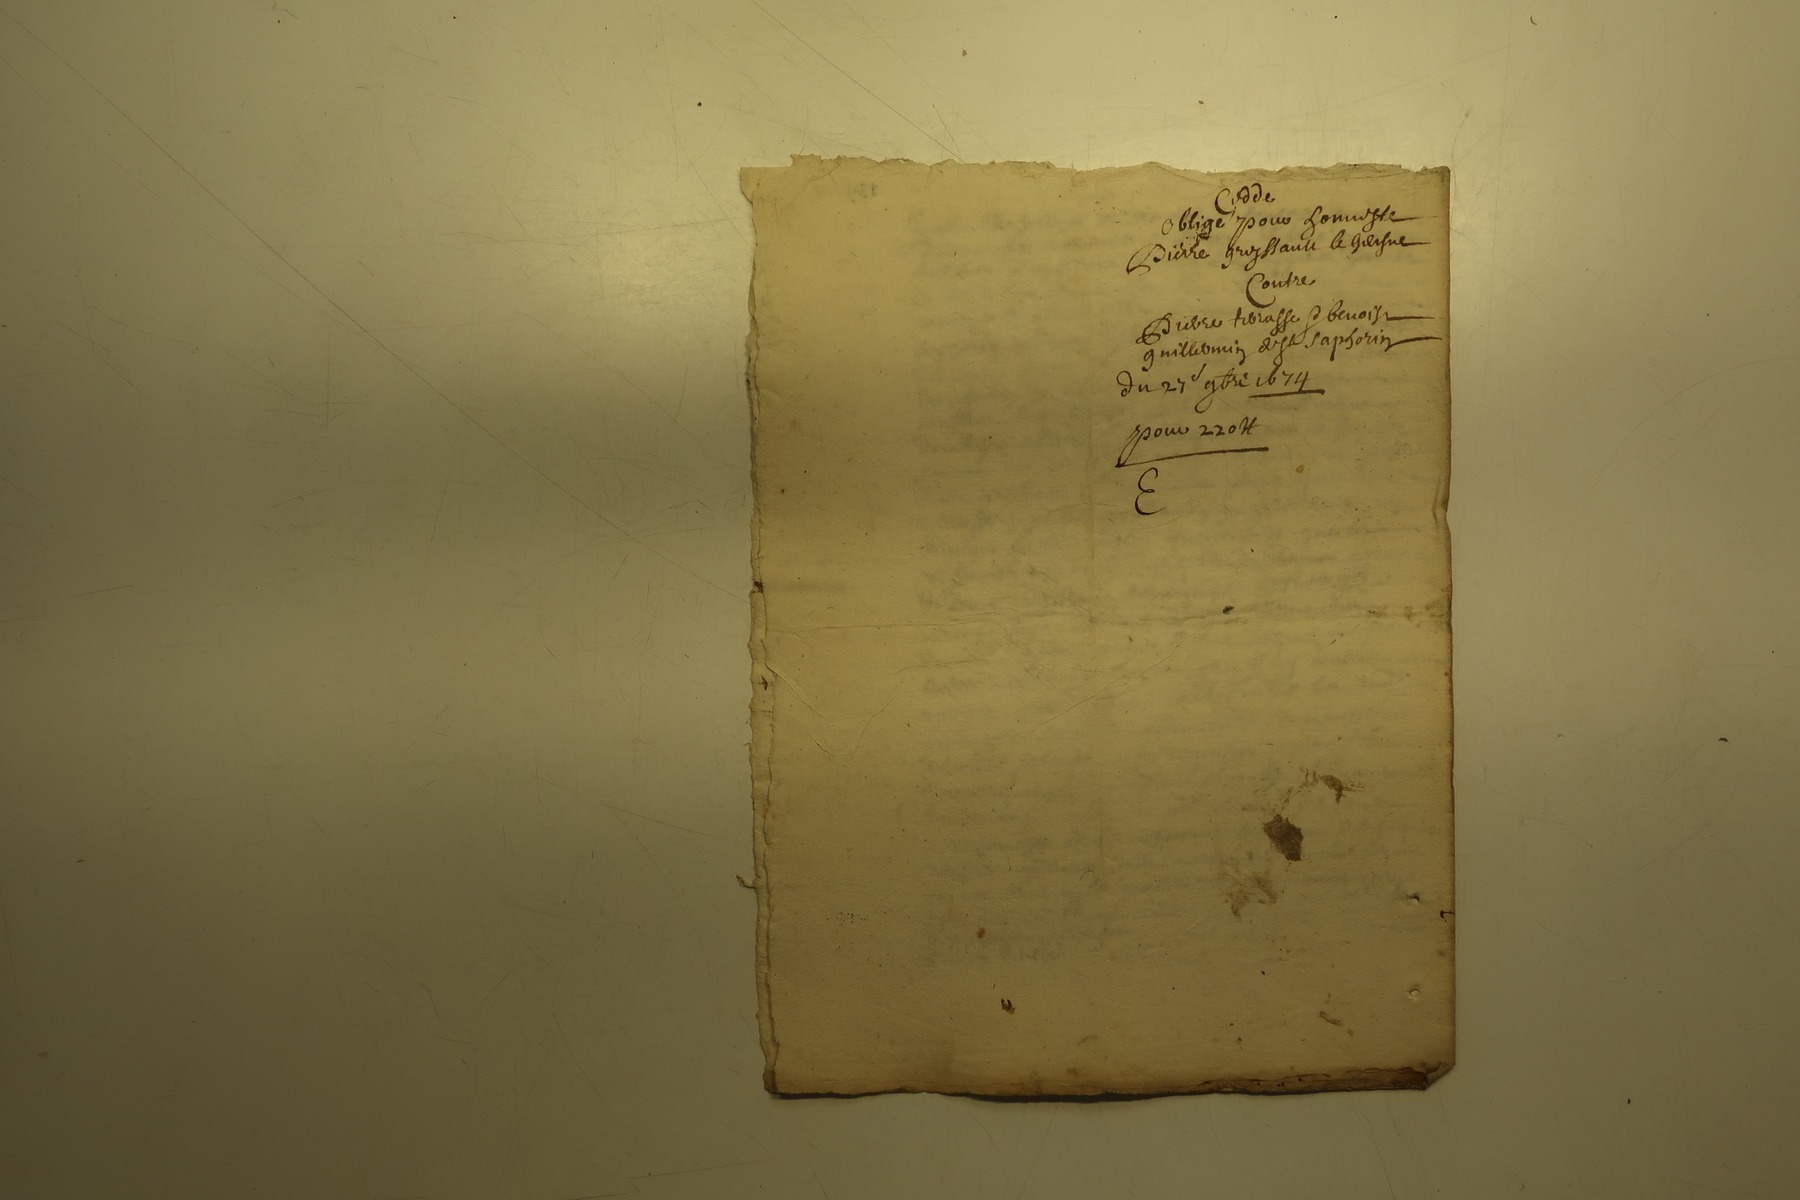 Cedde
Oblige pour honneste
Pierre grossaux le
Contre
Pierre terrasse & benoist
guillermin de st saphorin
du 27e 9bre 1674
pour 220 tt
E